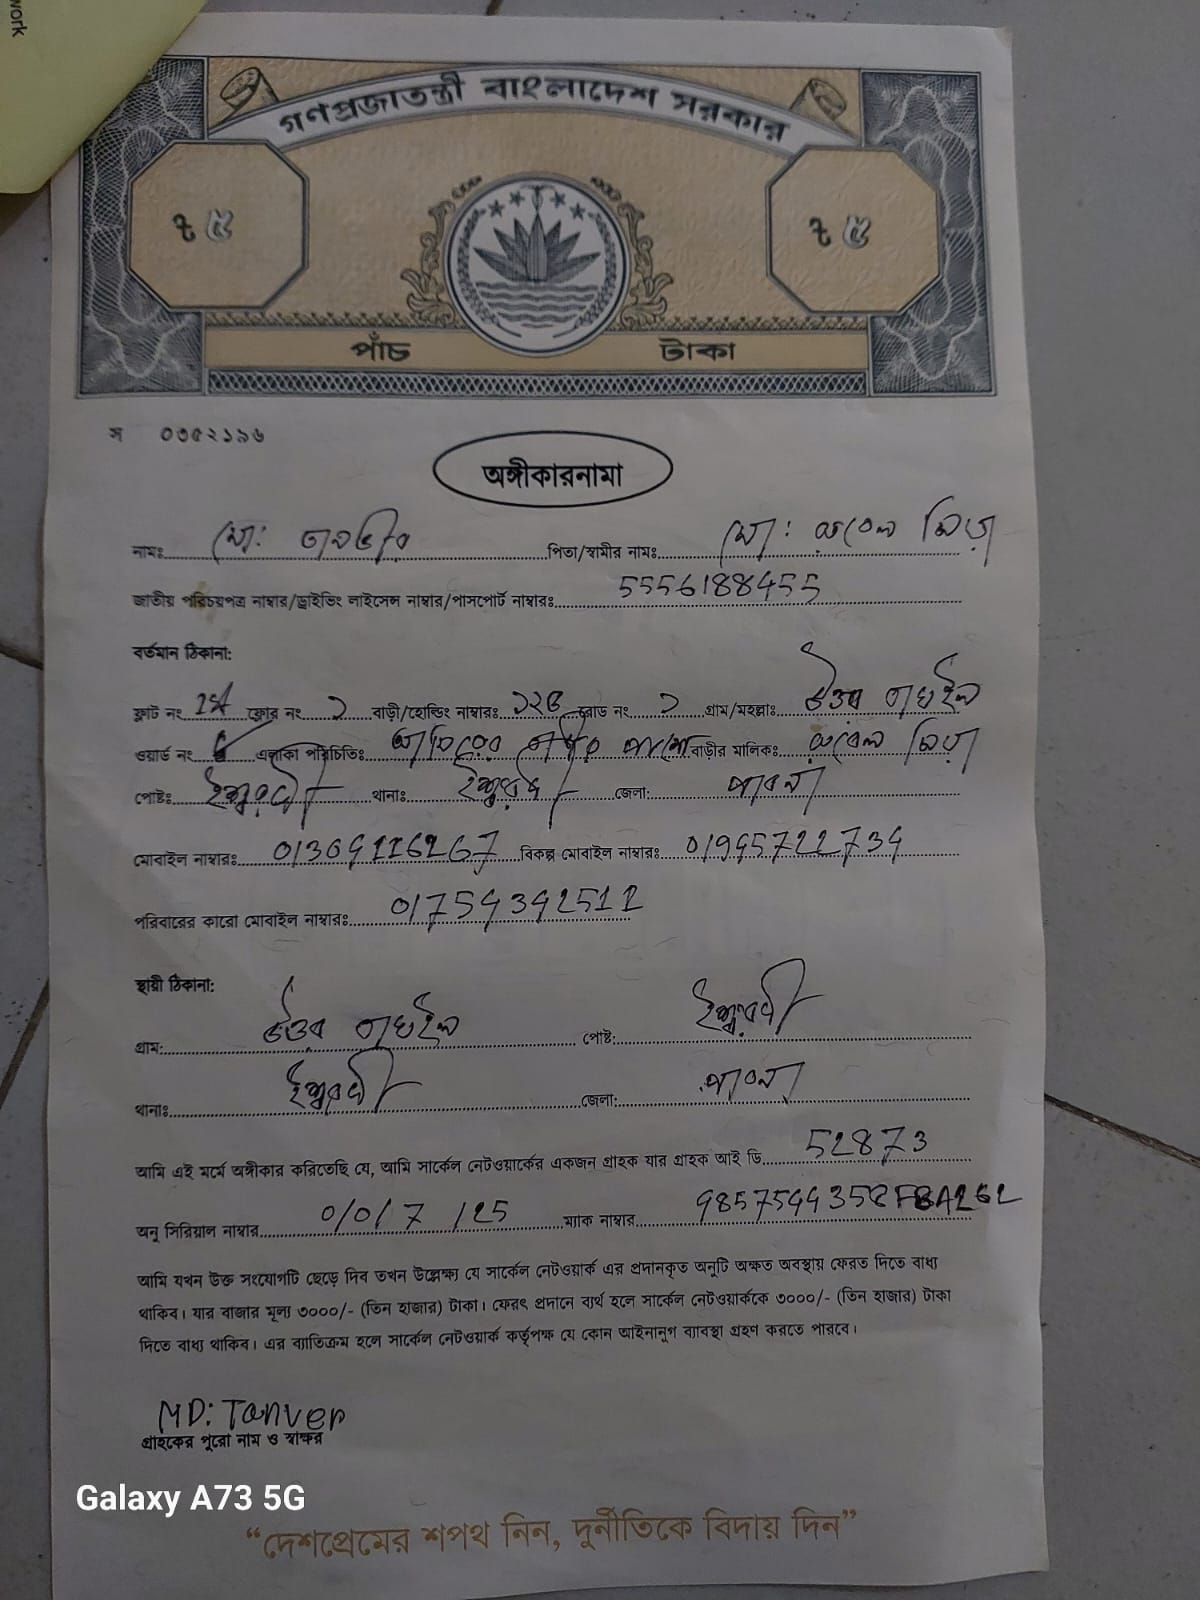 work
গণপ্রজাতন্ত্রী বাংলাদেশ সরকার
৳ ৫ ৳ ৫
পাঁচ টাকা
স ০৩৫২১৯৬
অঙ্গীকারনামা
নামঃ মো: তানভীর পিতা/স্বামীর নাম: মো: রুবেল মিয়া
জাতীয় পরিচয়পত্র নাম্বার/ড্রাইভিং লাইসেন্স নাম্বার/পাসপোর্ট নাম্বারঃ 5556188455
বর্তমান ঠিকানা:
ফ্লাট নং 1st ফ্লোর নং ১ বাড়ী/হোল্ডিং নাম্বারঃ রোড নং ১ গ্রাম/মহল্লাঃ উত্তর
ওয়ার্ড নং এলাকা পরিচিতিঃ পাশে বাড়ীর মালিকঃ রুবেল মিয়া
পোষ্টঃ ঈশ্বরদী থানাঃ ঈশ্বরদী জেলা: পাবনা
মোবাইল নাম্বারঃ 01309116267 বিকল্প মোবাইল নাম্বারঃ 01945722734
পরিবারের কারো মোবাইল নাম্বারঃ 01754342512
স্থায়ী ঠিকানা:
গ্রাম: উত্তর পোষ্ট: ঈশ্বরদী
থানাঃ ঈশ্বরদী জেলা: পাবনা
আমি এই মর্মে অঙ্গীকার করিতেছি যে, আমি সার্কেল নেটওয়ার্কের একজন গ্রাহক যার গ্রাহক আই ডি 52873
অনু সিরিয়াল নাম্বার 0/0/7 /25 ম্যাক নাম্বার
আমি যখন উক্ত সংযোগটি ছেড়ে দিব তখন উল্লেক্ষ্য যে সার্কেল নেটওয়ার্ক এর প্রদানকৃত অনুটি অক্ষত অবস্থায় ফেরত দিতে বাধ্য
থাকিব। যার বাজার মূল্য ৩০০০/- (তিন হাজার) টাকা। ফেরৎ প্রদানে ব্যর্থ হলে সার্কেল নেটওয়ার্ককে ৩০০০/- (তিন হাজার) টাকা
দিতে বাধ্য থাকিব। এর ব্যাতিক্রম হলে সার্কেল নেটওয়ার্ক কর্তৃপক্ষ যে কোন আইনানুগ ব্যাবস্থা গ্রহণ করতে পারবে।
MD: Tanver
গ্রাহকের পুরো নাম ও স্বাক্ষর
Galaxy A73 5G
“দেশপ্রেমের শপথ নিন, দুর্নীতিকে বিদায় দিন”